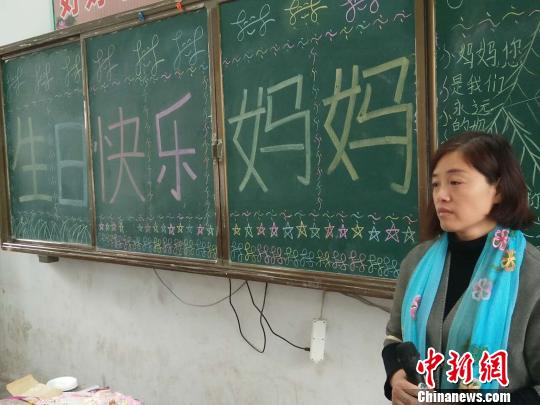 生日快乐 妈妈
小妈妈,您
是我们
永远
的妈
中新网
Chinanews.com